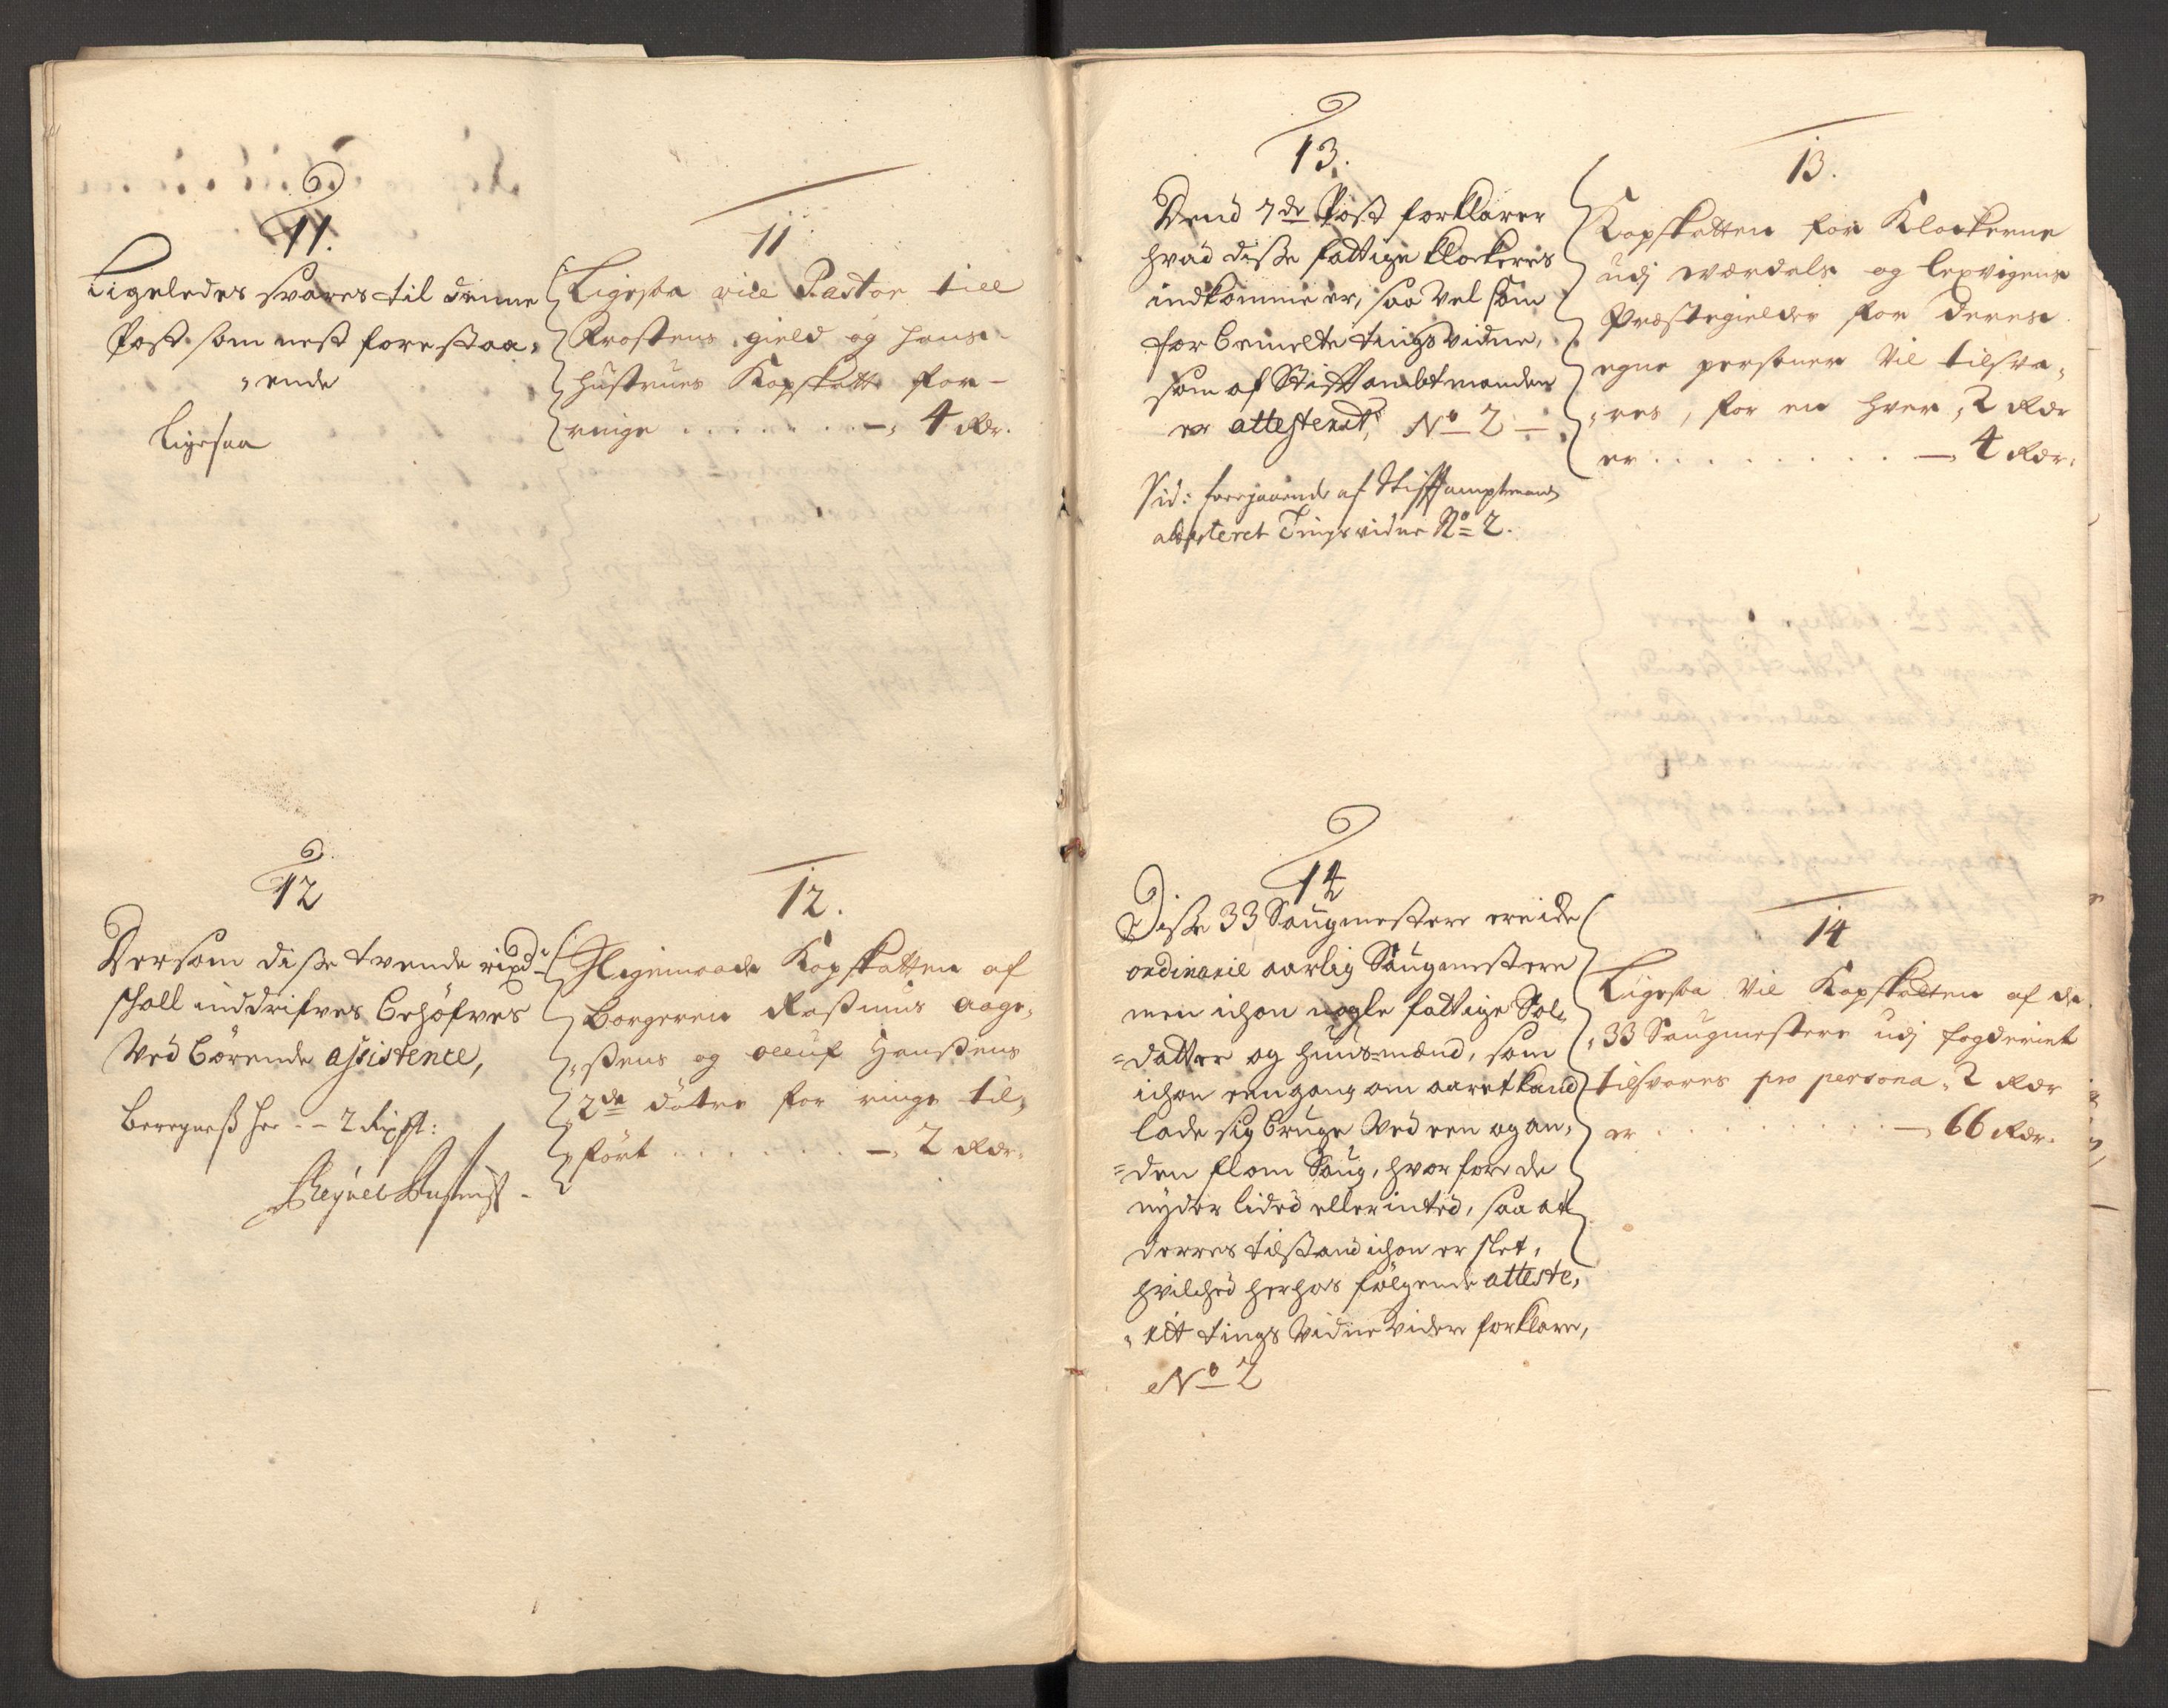 11.
Ligeledes svares til denne
Post som nest forestaa,
"ende
Ligesaa
11
Ligesaa vill Pastor till
Frostens gield og hans
hustrues Kopskatt for-
ringe . . . . . . . — 4 Rdr.
12
Dersom disse tvende rixdr
schall inddrifves behöfves
Ved börende assistence,
Beregness her - - 2 Rixdl:
12.
Ligemaade Kopskatten af
Borgeren Rasmus Aage,
"sens og Oluf Hansens
2de dötre for ringe til,
"fört . . . . . . — 2 Rdr.
13.
Dend 7de Post forklarer
hvad disse fattige klockeres
indkomme er, saa vel som
forbemelte tingsvidne,
som af Stiftambtmanden
er attesteret, No 2 —
Vid: foregaaende af Stiftamptmand
attesteret Tingsvidne No 2.
13.
Kopskatten for Klockerne
udj Værdals og Lexvigens
Præstegielder for deres
egne personer vil tilsva,
"res, for en hver, 2 Rdr
er . . . . . . . . — 4 Rdr.
14
Disse 33 Saugmestere ere icke
ordinarie aarlig Saugmestere
men ichon nogle fattige Sol,
=datter og huusmænd, som
ichon een gang om aaret kand
lade sig bruge ved een og an,
=den flom Saug, hvorfore de
nyder lided eller inted, saa at
derres tilstand ichon er slet,
hvilched herhos fölgende atteste,
"rit tings vidne vider forklare,
No 2
14
Ligesaa vil Kopskatten af de
33 Saugmestere udj fogderiet
tilsvares pro persona, 2 Rdr
er . . . . . . . . . — 66 Rdr.